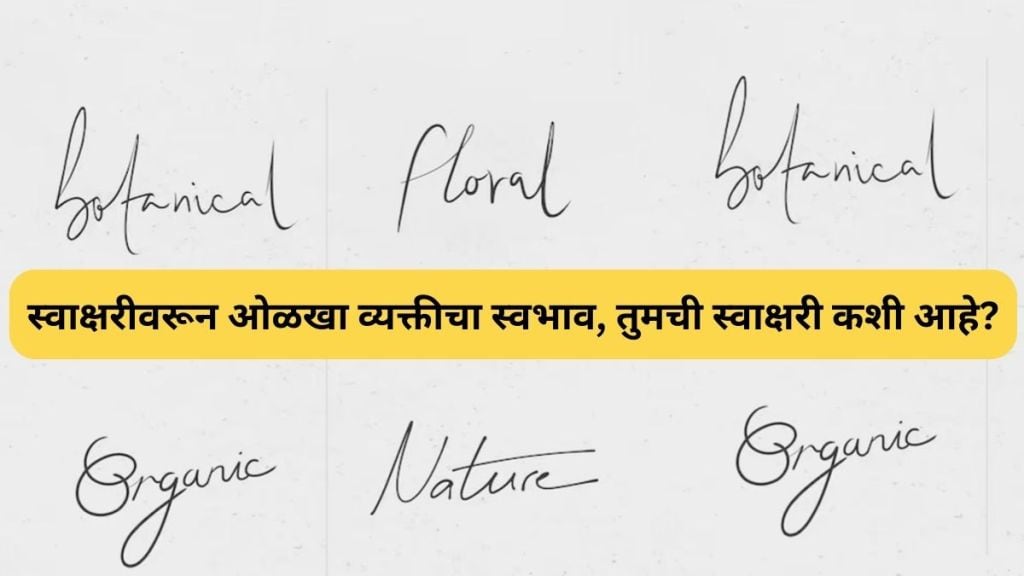 Botanical Floral Botanical
स्वाक्षरीवरून ओळखा व्यक्तीचा स्वभाव, तुमची स्वाक्षरी कशी आहे?
Organic Nature Organic